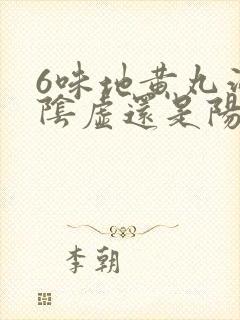 6味地黄丸
陰虛還是陽
李朝